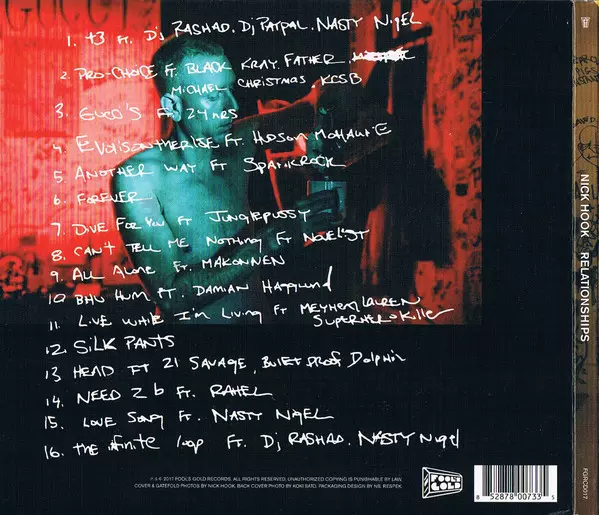 GUCCI
1. t3 ft. Dj RASHAD. Dj PAYPAL. NASTY NIGEL
2. PRO-CHOICE ft. BLACK KRAY. FATHER.
MICHAEL CHRISTMAS. KCSB
3. GUCCI'S ft 24HRS
4. EVOLISONTHERISE FT. HUDSON MOHAWKE
5. ANOTHER WAY FT SPANKROCK
6. FOREVER
7. DIVE FOR YOU FT JUNGLEPUSSY
8. CAN'T TELL ME NOTHING FT NOVELIST
9. ALL ALONE FT. MAKONNEN
10 BHU HUM FT. DAMIAN
11. LIVE WHILE I'M LIVING FT MEYHEM LAUREN
SUPERHERO KILLER
12. SILK PANTS
13 HEAD FT 21 SAVAGE, BULLETPROOF DOLPHIN
14. NEED 2 b FT. RAHEL
15. LOVE SONG FT. NASTY NIGEL
16. the infinite loop FT. Dj RASHAD. NASTY Nigel
℗ & © 2017 FOOLS GOLD RECORDS. ALL RIGHTS RESERVED. UNAUTHORIZED COPYING IS PUNISHABLE BY LAW.
COVER & GATEFOLD PHOTOS BY NICK HOOK. BACK COVER PHOTO BY KOKI SATO. PACKAGING DESIGN BY NS. RESPEK.
FOOL'S GOLD
8 52878 00733 5
NICK HOOK RELATIONSHIPS
FGRCD017